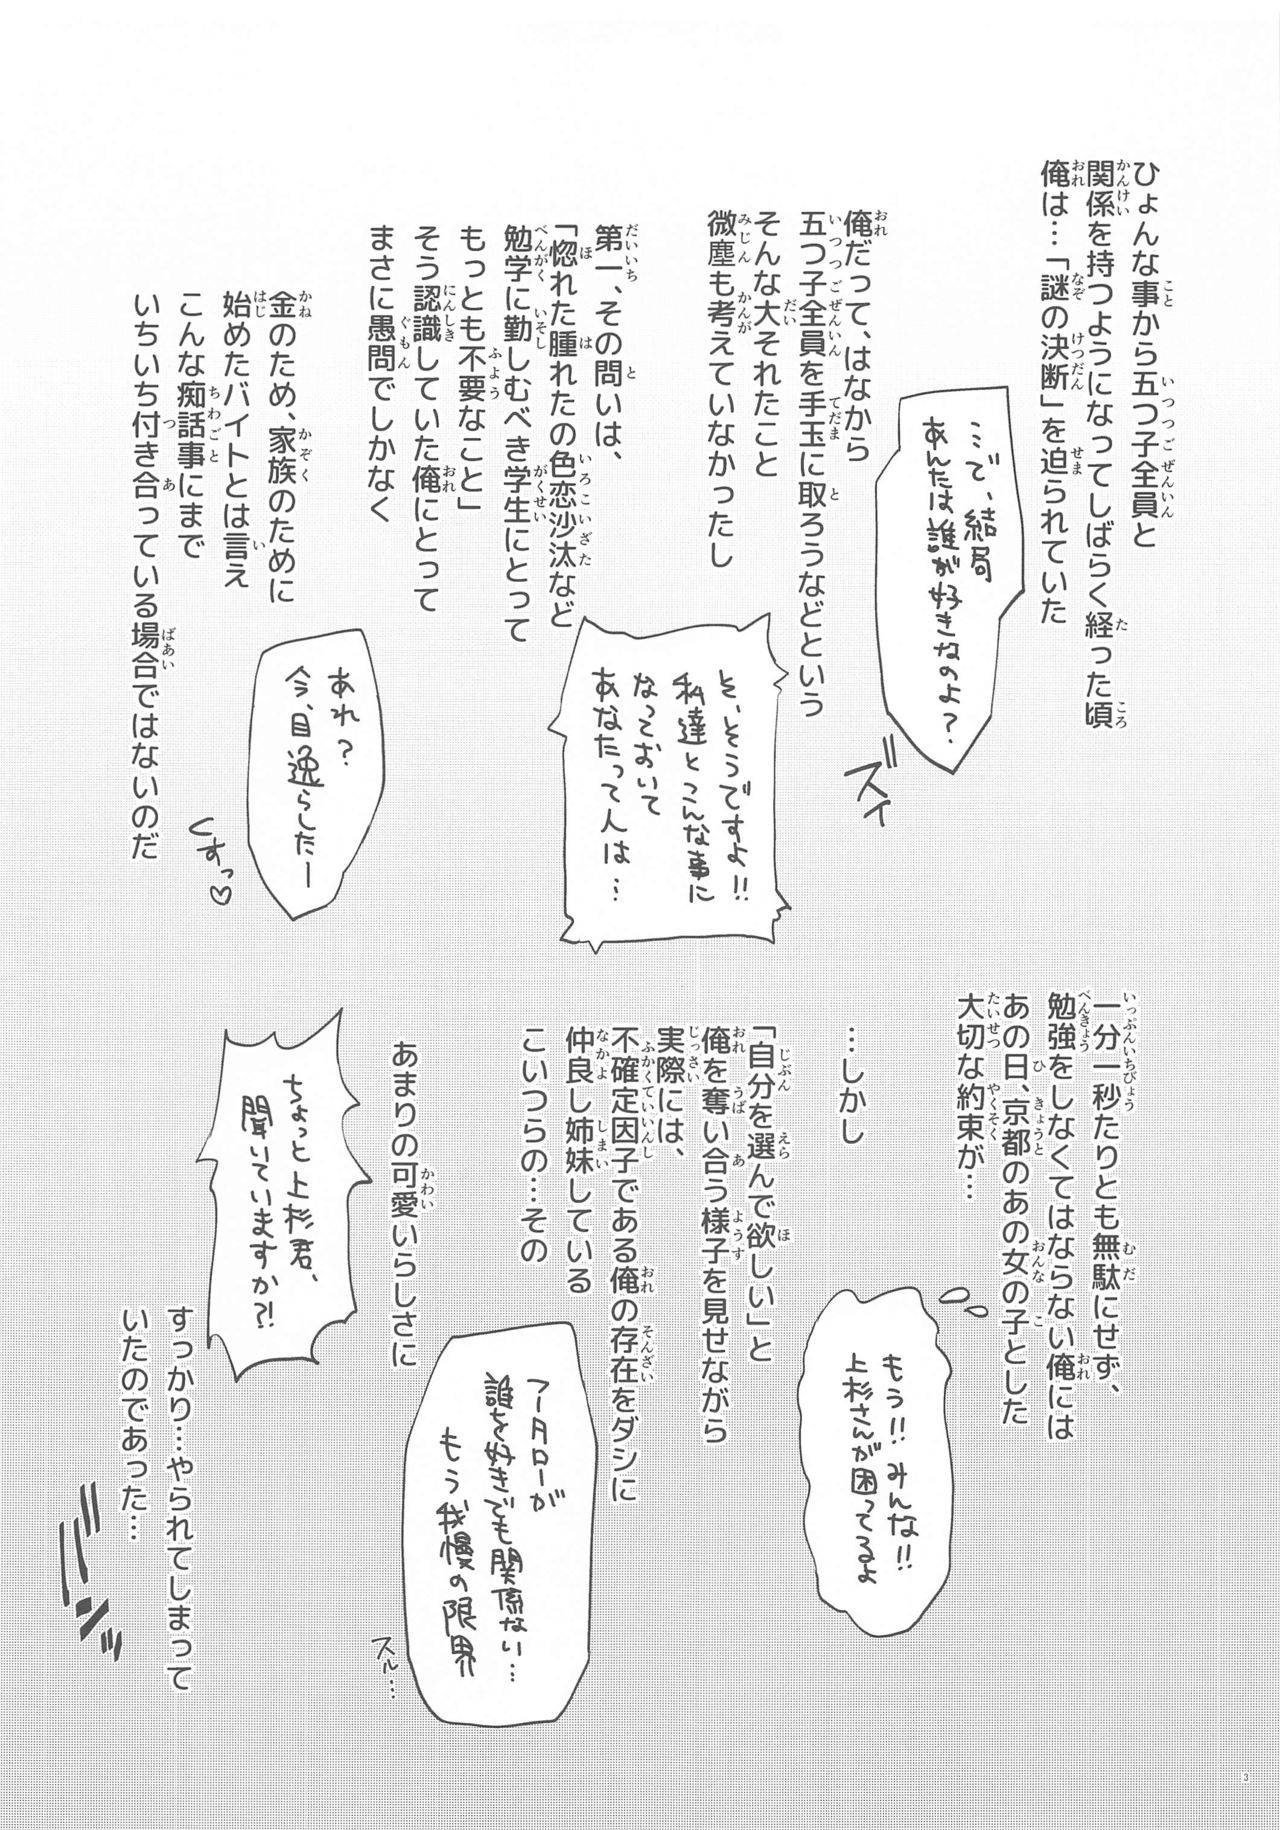 ひょんな事から五つ子全員と
関係を持つようになってしばらく経った頃
俺は…「謎の決断」を迫られていた
…で、結局
あんたは誰が好きなのよ？
ズイ
俺だって、はなから
五つ子全員を手玉に取ろうなどという
そんな大それたこと
微塵も考えていなかったし
そ、そうですよ!!
私達とこんな事に
なっておいて
あなたって人は…
第一、その問いは、
「惚れた腫れたの色恋沙汰など
勉学に勤しむべき学生にとって
もっとも不要なこと」
そう認識していた俺にとって
まさに愚問でしかなく
あれ？
今、目逸らしたー
くすっ♡
金のため、家族のために
始めたバイトとは言え
こんな痴話事にまで
いちいち付き合っている場合ではないのだ
一分一秒たりとも無駄にせず、
勉強をしなくてはならない俺には
あの日、京都のあの女の子とした
大切な約束が…
もう!!みんな!!
上杉さんが困ってるよ
…しかし
「自分を選んで欲しい」と
俺を奪い合う様子を見せながら
実際には、
不確定因子である俺の存在をダシに
仲良し姉妹している
こいつらの…その
フータローが
誰を好きでも関係ない…
もう我慢の限界
スル…
あまりの可愛いらしさに
ちょっと上杉君、
聞いていますか?!
すっかり…やられてしまって
いたのであった…
ビンッ
3